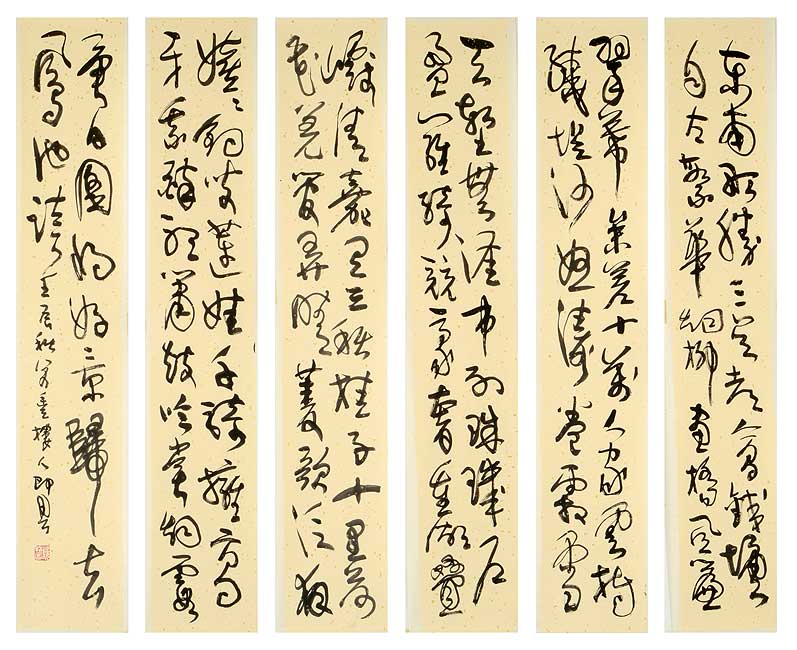 東南形勝三吳都會錢塘
自古繁華煙柳畫橋風簾
翠幕參差十萬人家雲樹
繞堤沙怒濤卷霜雪
天塹無涯市列珠璣戶
盈羅綺競豪奢重湖疊
巘清嘉有三秋桂子十里荷
花羌管弄晴菱歌泛夜
嬉嬉釣叟蓮娃千騎擁高
牙乘醉聽簫鼓吟賞煙霞
異日圖將好景歸去
鳳池誇 壬辰秋 樓人